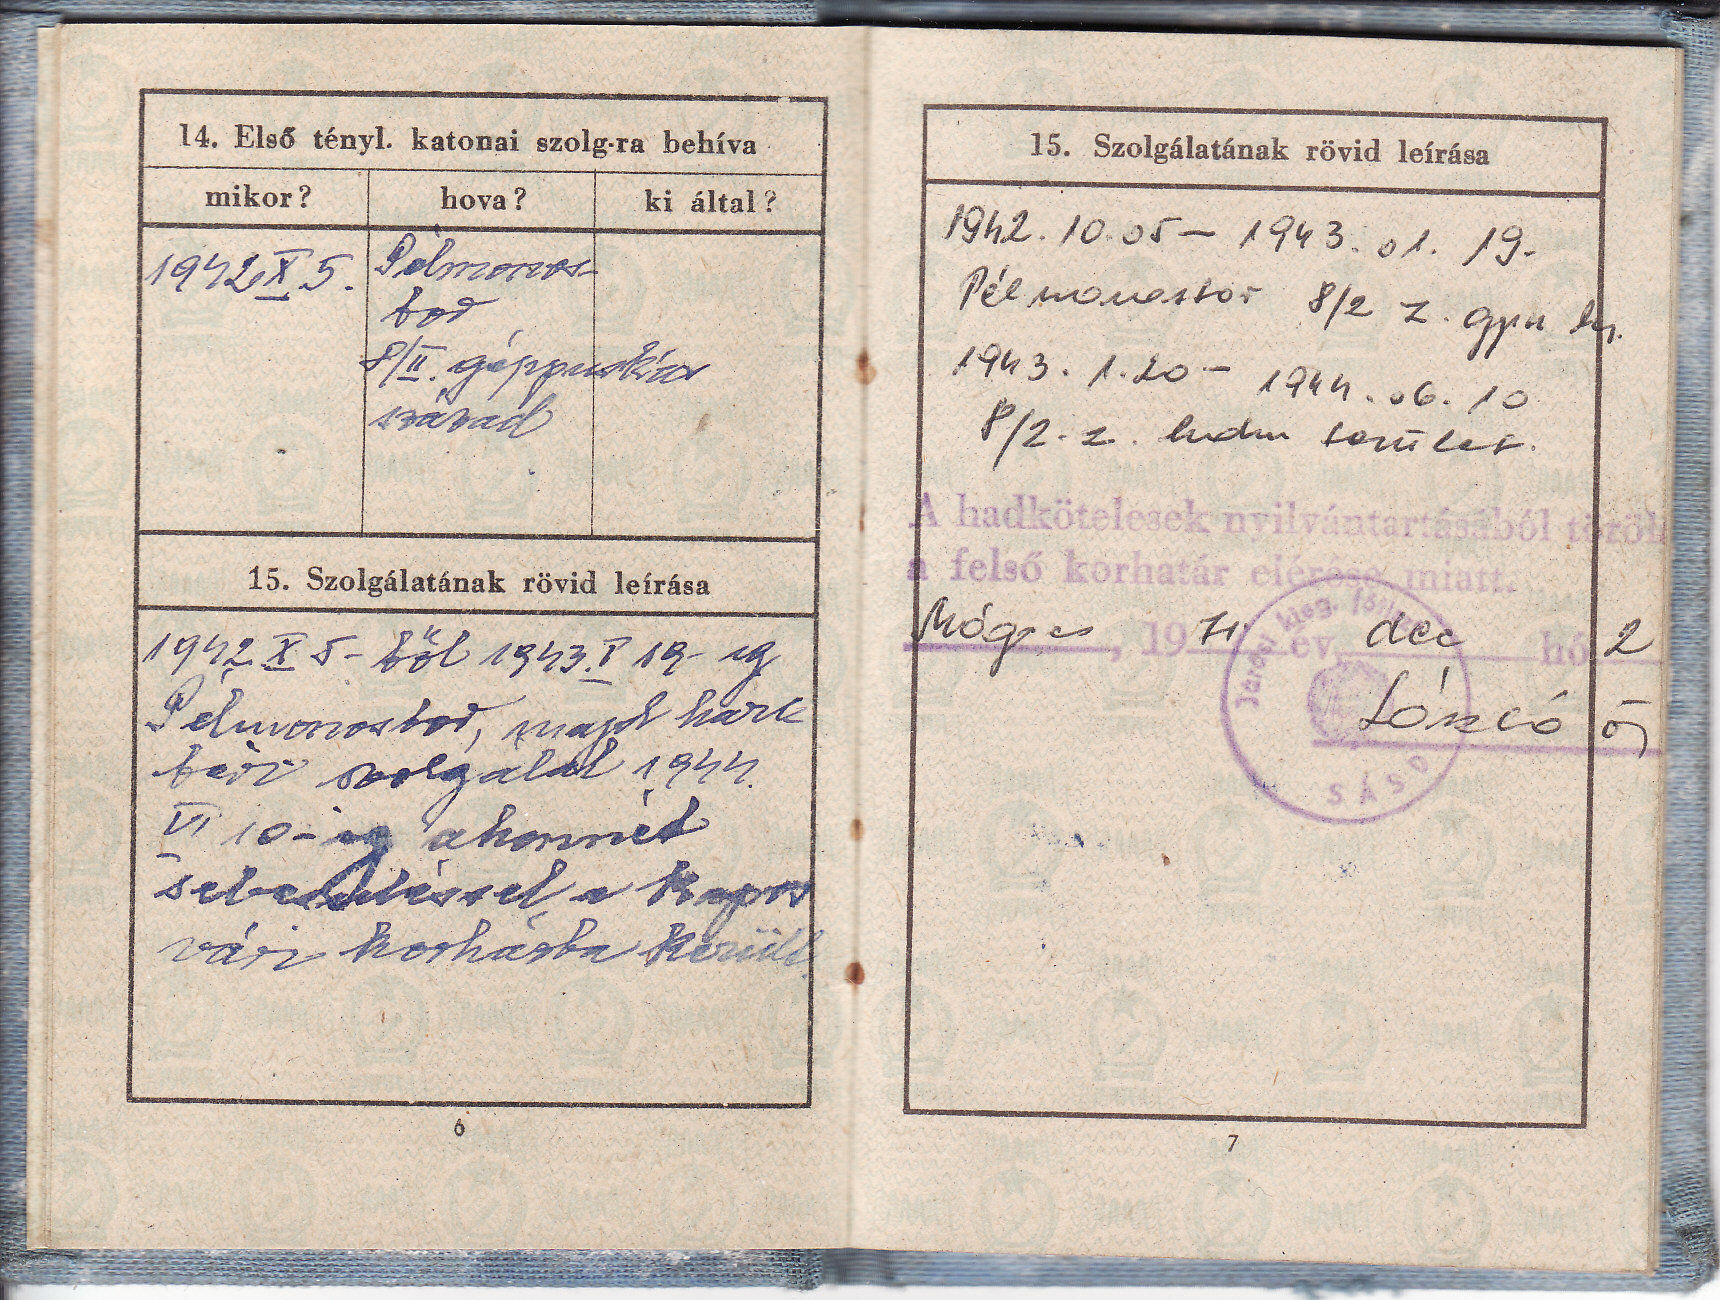 14. Első tényl. katonai szolg-ra behíva
mikor? hova? ki által?
1942 X 5. Pélmonos-
tor
8/II. géppuskás
század
15. Szolgálatának rövid leírása
1942 X 5-től 1943. I 19-ig
Pélmonostor, majd harc
téri szolgálat 1944.
VI 10-ig ahonnét
sebesüléssel a Kapos
vári korházba került.
6
15. Szolgálatának rövid leírása
1942. 10. 05 – 1943. 01. 19.
Pélmonostor 8/2 z. gpu
1943. 1. 20 – 1944. 06. 10
8/2. z.
A hadkötelesek nyilvántartásából töröl
a felső korhatár elérése miatt.
19 71 év dec hó 2
Járási kieg.
SÁSD
7